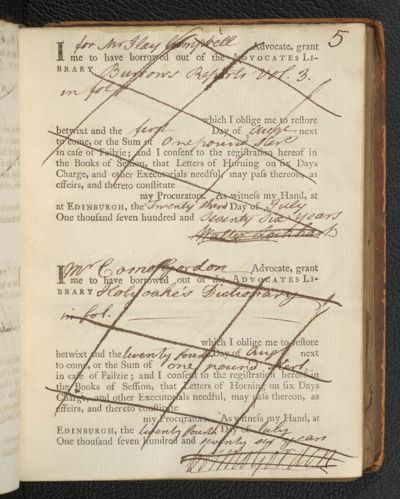 5
I for Mr Ilay Campbell Advocate, grant
me to have borrowed out of the ADVOCATES LI-
BRARY Burrows Reports Vol. 3.
in fol.
which I oblige me to reſtore
betwixt and the first Day of next
to come, or the Sum of One pound Ster.
in caſe of Failzie; and I conſent to the regiſtration hereof in
the Books of Seſſion, that Letters of Horning on ſix Days
Charge, and other Executorials needful, may paſs thereon, as
effeirs, and thereto conſtitute
my Procurators. As witneſs my Hand, at
at EDINBURGH, the Twenty third Day of July
One thouſand ſeven hundred and Seventy Six years
Walter Lockhart
I Mr Cosmo Gordon Advocate, grant
me to have borrowed out of the ADVOCATES LI-
BRARY Holyoake's Dictionary
in fol.
which I oblige me to reſtore
betwixt and the twenty fourth Day of Augt next
to come, or the Sum of one pound Sterl.
in caſe of Failzie; and I conſent to the regiſtration hereof in
the Books of Seſſion, that Letters of Horning on ſix Days
Charge, and other Executorials needful, may paſs thereon, as
effeirs, and thereto conſtitute
my Procurators. As witneſs my Hand, at
EDINBURGH, the twenty fourth Day of July
One thouſand ſeven hundred and seventy six years